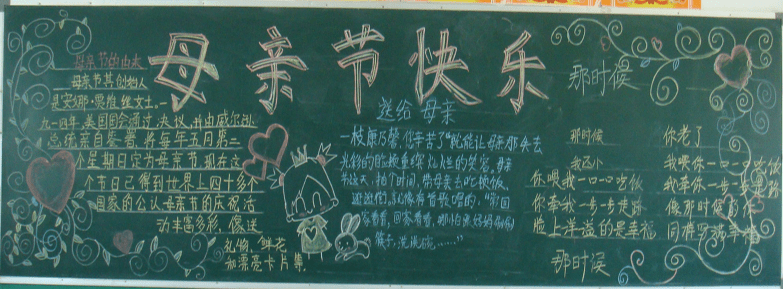 母亲节快乐
母亲节的由来
母亲节其创始人
是安娜·贾维丝女士.一
九一四年,美国国会通过决议,并由威尔逊
总统亲自签署,将每年五月第二
个星期日定为母亲节.现在这
个节日已得到世界上四十多个
国家的公认.母亲节的庆祝活
动丰富多彩,像送
礼物,鲜花
和漂亮卡片等.
送给母亲
一枝康乃馨,一句"辛苦了"就能让母亲那失去
光彩的脸颊重绽灿烂的笑容.母亲
节这天,抽个时间,带母亲去吃顿饭,
逛逛街,就像有首歌唱的,"常回
家看看,回家看看,哪怕帮妈妈刷刷
筷子,洗洗碗……"
那时候
那时候
我还小
你喂我一口一口吃饭
你牵我一步一步走路
脸上洋溢的是幸福
那时候
你老了
我喂你一口一口吃
我牵你一步一步走
像那时候的你
同样写满幸福